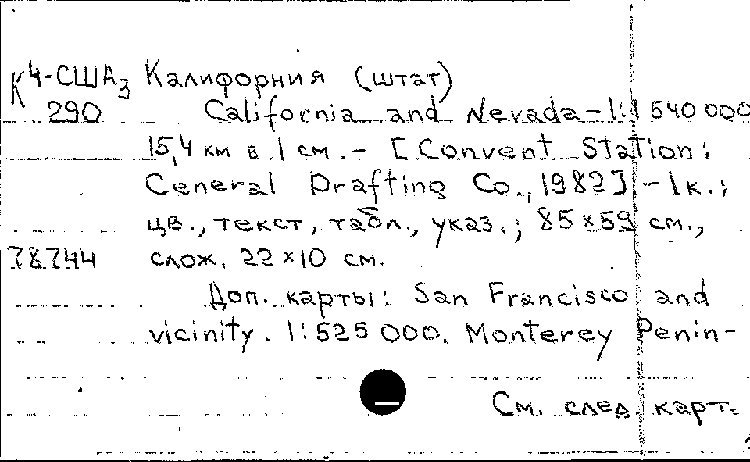 К4-США3 Калифорния (штат)
290 California and Nevada - 1:1 540 000
15,4 км в 1 см. - [Convent Station:
General Drafting Co., 1982] - 1 к.;
цв., текст, табл., указ.; 85x59 см.,
78744 слож. 22x10 см.
Доп. карты: San Francisco and
vicinity. 1:525 000. Monterey Penin-
См. след. карт.